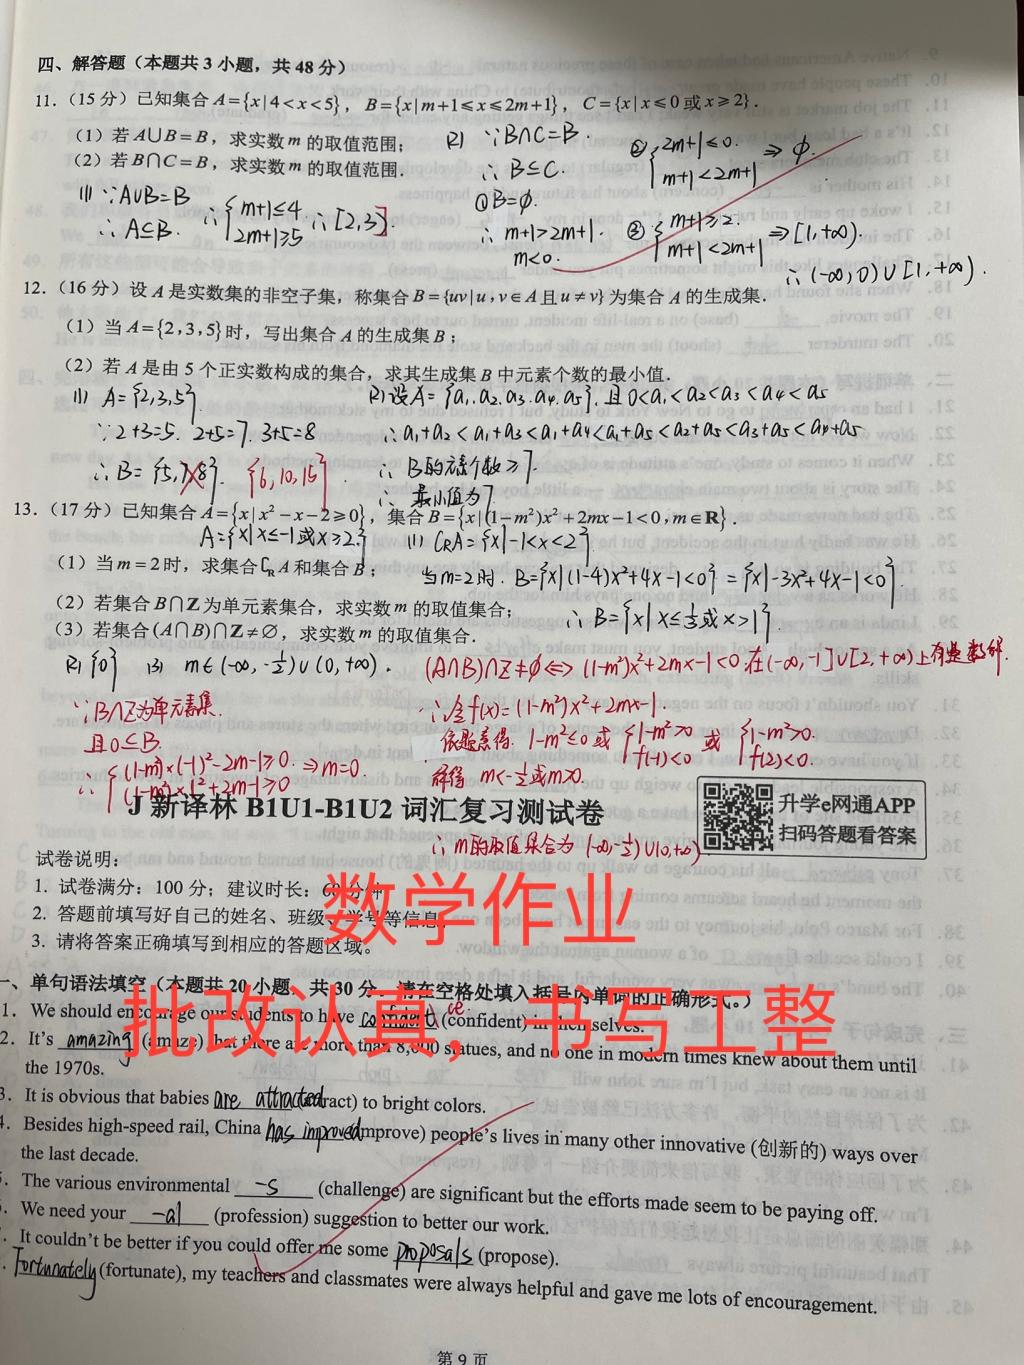 四、解答题（本题共 3 小题，共 48 分）
11.（15 分）已知集合 A={x|4<x<5}，B={x|m+1≤x≤2m+1}，C={x|x≤0 或 x≥2}.
（1）若 A∪B=B，求实数 m 的取值范围；
（2）若 B∩C=B，求实数 m 的取值范围.
(1) ∵A∪B=B
∴ A⊆B. ∴ {m+1≤4 2m+1≥5 ∴ [2,3].
(2) ∵B∩C=B.
∴ B⊆C.
①B=∅.
∴ m+1>2m+1.
m<0.
② {2m+1≤0. m+1<2m+1 ⇒ ∅.
③ {m+1≥2. m+1<2m+1 ⇒ [1,+∞).
∴ (-∞,0)∪[1,+∞).
12.（16 分）设 A 是实数集的非空子集，称集合 B={uv|u，v∈A 且 u≠v} 为集合 A 的生成集.
（1）当 A={2,3,5} 时，写出集合 A 的生成集 B；
（2）若 A 是由 5 个正实数构成的集合，求其生成集 B 中元素个数的最小值.
(1) A={2,3,5}.
∵2+3=5. 2+5=7. 3+5=8
∴ B={5,7,8}. {6,10,15}
(2) 设A={a₁.a₂.a₃.a₄.a₅}. 且0<a₁<a₂<a₃<a₄<a₅
∴a₁+a₂<a₁+a₃<a₁+a₄<a₁+a₅<a₂+a₅<a₃+a₅<a₄+a₅
∴ B的元素个数≥7.
∴ 最小值为7
13.（17 分）已知集合 A={x|x²-x-2≥0}，集合 B={x|(1-m²)x²+2mx-1<0,m∈R}.
A={x|x≤-1或x≥2.}
（1）当 m=2 时，求集合 ∁RA 和集合 B；
（2）若集合 B∩Z 为单元素集合，求实数 m 的取值集合；
（3）若集合 (A∩B)∩Z≠∅，求实数 m 的取值集合.
(1) CRA={x|-1<x<2}
当m=2时. B={x|(1-4)x²+4x-1<0}={x|-3x²+4x-1<0}.
∴ B={x|x≤⅓或x>1}.
(2) {0} (3) m∈(-∞,-½)∪(0,+∞).
∵B∩Z为单元素集.
且0⊆B.
∴ {(1-m²)×(-1)²-2m-1≥0. (1-m²)×1²+2m-1≥0 ⇒m=0.
(A∩B)∩Z≠∅⟺(1-m²)x²+2mx-1<0.在(-∞,-1]∪[2,+∞)上有整数解.
∴令f(x)=(1-m²)x²+2mx-1.
依题意得. 1-m²≤0 或 {1-m²>0 f(-1)<0 或 {1-m²>0. f(2)<0.
解得 m<-½或m>0.
∴m的取值集合为(-∞,-½)∪(0,+∞)
J 新译林 B1U1-B1U2 词汇复习测试卷
升学e网通APP
扫码答题看答案
试卷说明：
1. 试卷满分：100 分；建议时长：60 分钟
2. 答题前填写好自己的姓名、班级、学号等信息。
3. 请将答案正确填写到相应的答题区域。
数学作业
批改认真，书写工整
一、单句语法填空（本题共 20 小题，共 30 分，请在空格处填入括号内单词的正确形式。）
1. We should encourage our students to have confident ce (confident) in themselves.
2. It's amazing (amaze) that there are more than 8,000 statues, and no one in modern times knew about them until
the 1970s.
3. It is obvious that babies are attracted (attract) to bright colors.
4. Besides high-speed rail, China has improved (improve) people's lives in many other innovative (创新的) ways over
the last decade.
5. The various environmental -s (challenge) are significant but the efforts made seem to be paying off.
6. We need your -al (profession) suggestion to better our work.
7. It couldn't be better if you could offer me some proposals (propose).
8. Fortunately (fortunate), my teachers and classmates were always helpful and gave me lots of encouragement.
第 9 页